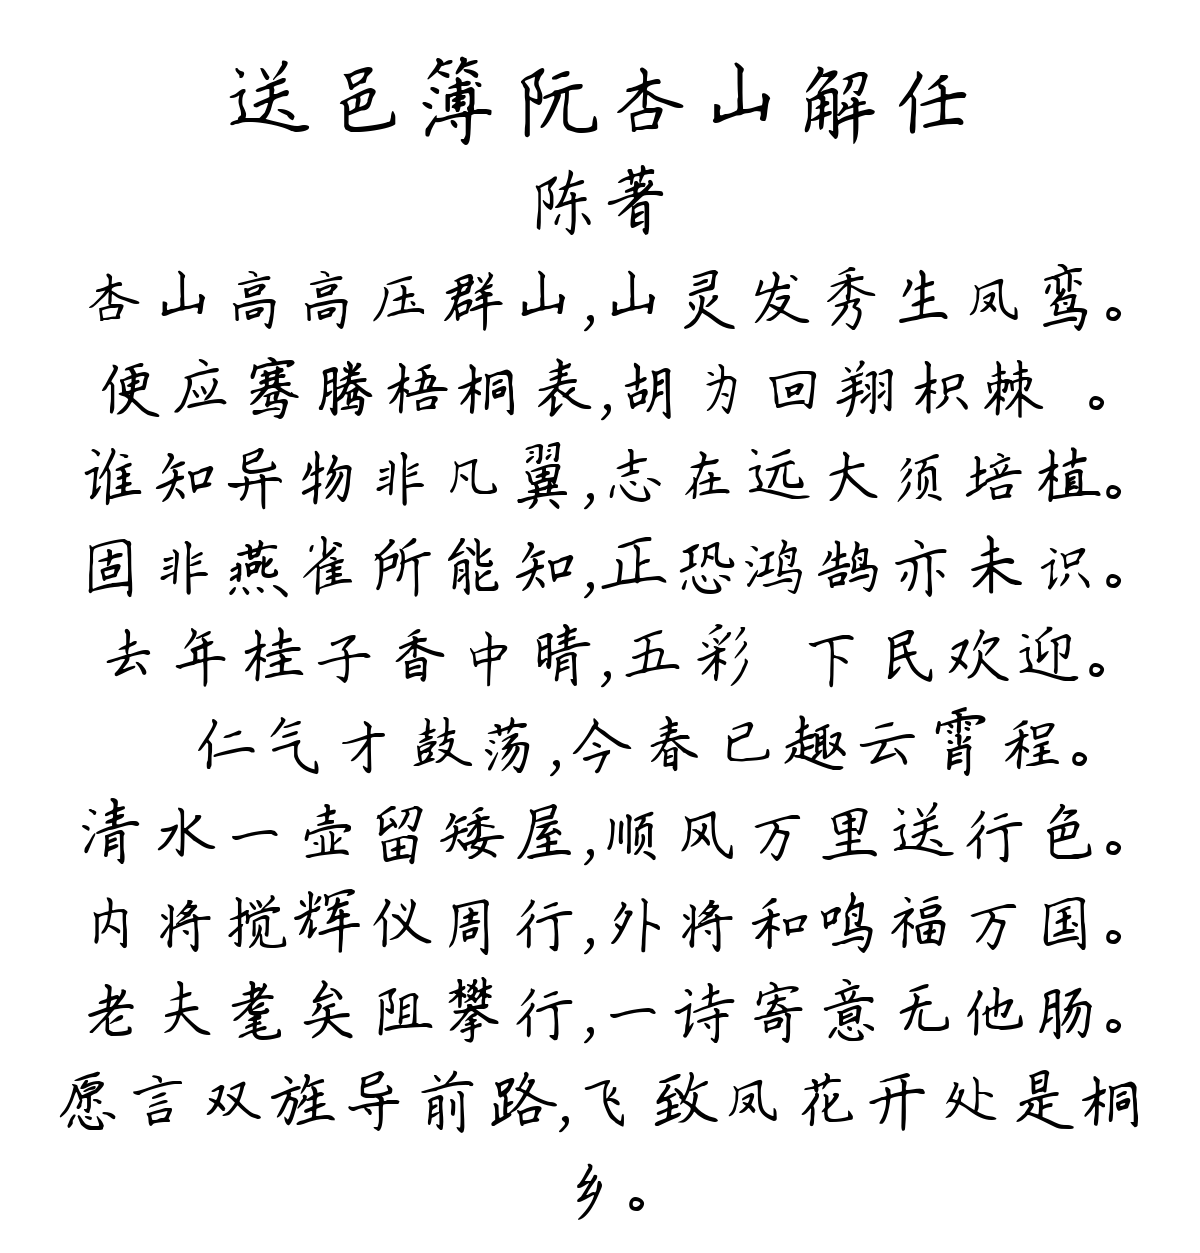 送邑簿阮杏山解任
陈著
杏山高高压群山,山灵发秀生凤鸾。
便应骞腾梧桐表,胡为回翔枳棘 。
谁知异物非凡翼,志在远大须培植。
固非燕雀所能知,正恐鸿鹄亦未识。
去年桂子香中晴,五彩 下民欢迎。
仁气才鼓荡,今春已趣云霄程。
清水一壶留矮屋,顺风万里送行色。
内将搅辉仪周行,外将和鸣福万国。
老夫耄矣阻攀行,一诗寄意无他肠。
愿言双旌导前路,飞致凤花开处是桐
乡。